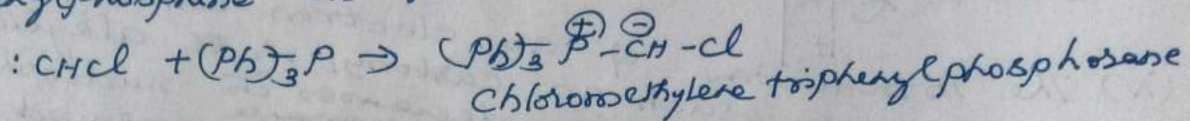 :CHCl + (Ph)₃P → (Ph)₃ P⊕-CH⊖-Cl
Chloromethylene triphenylphosphorane